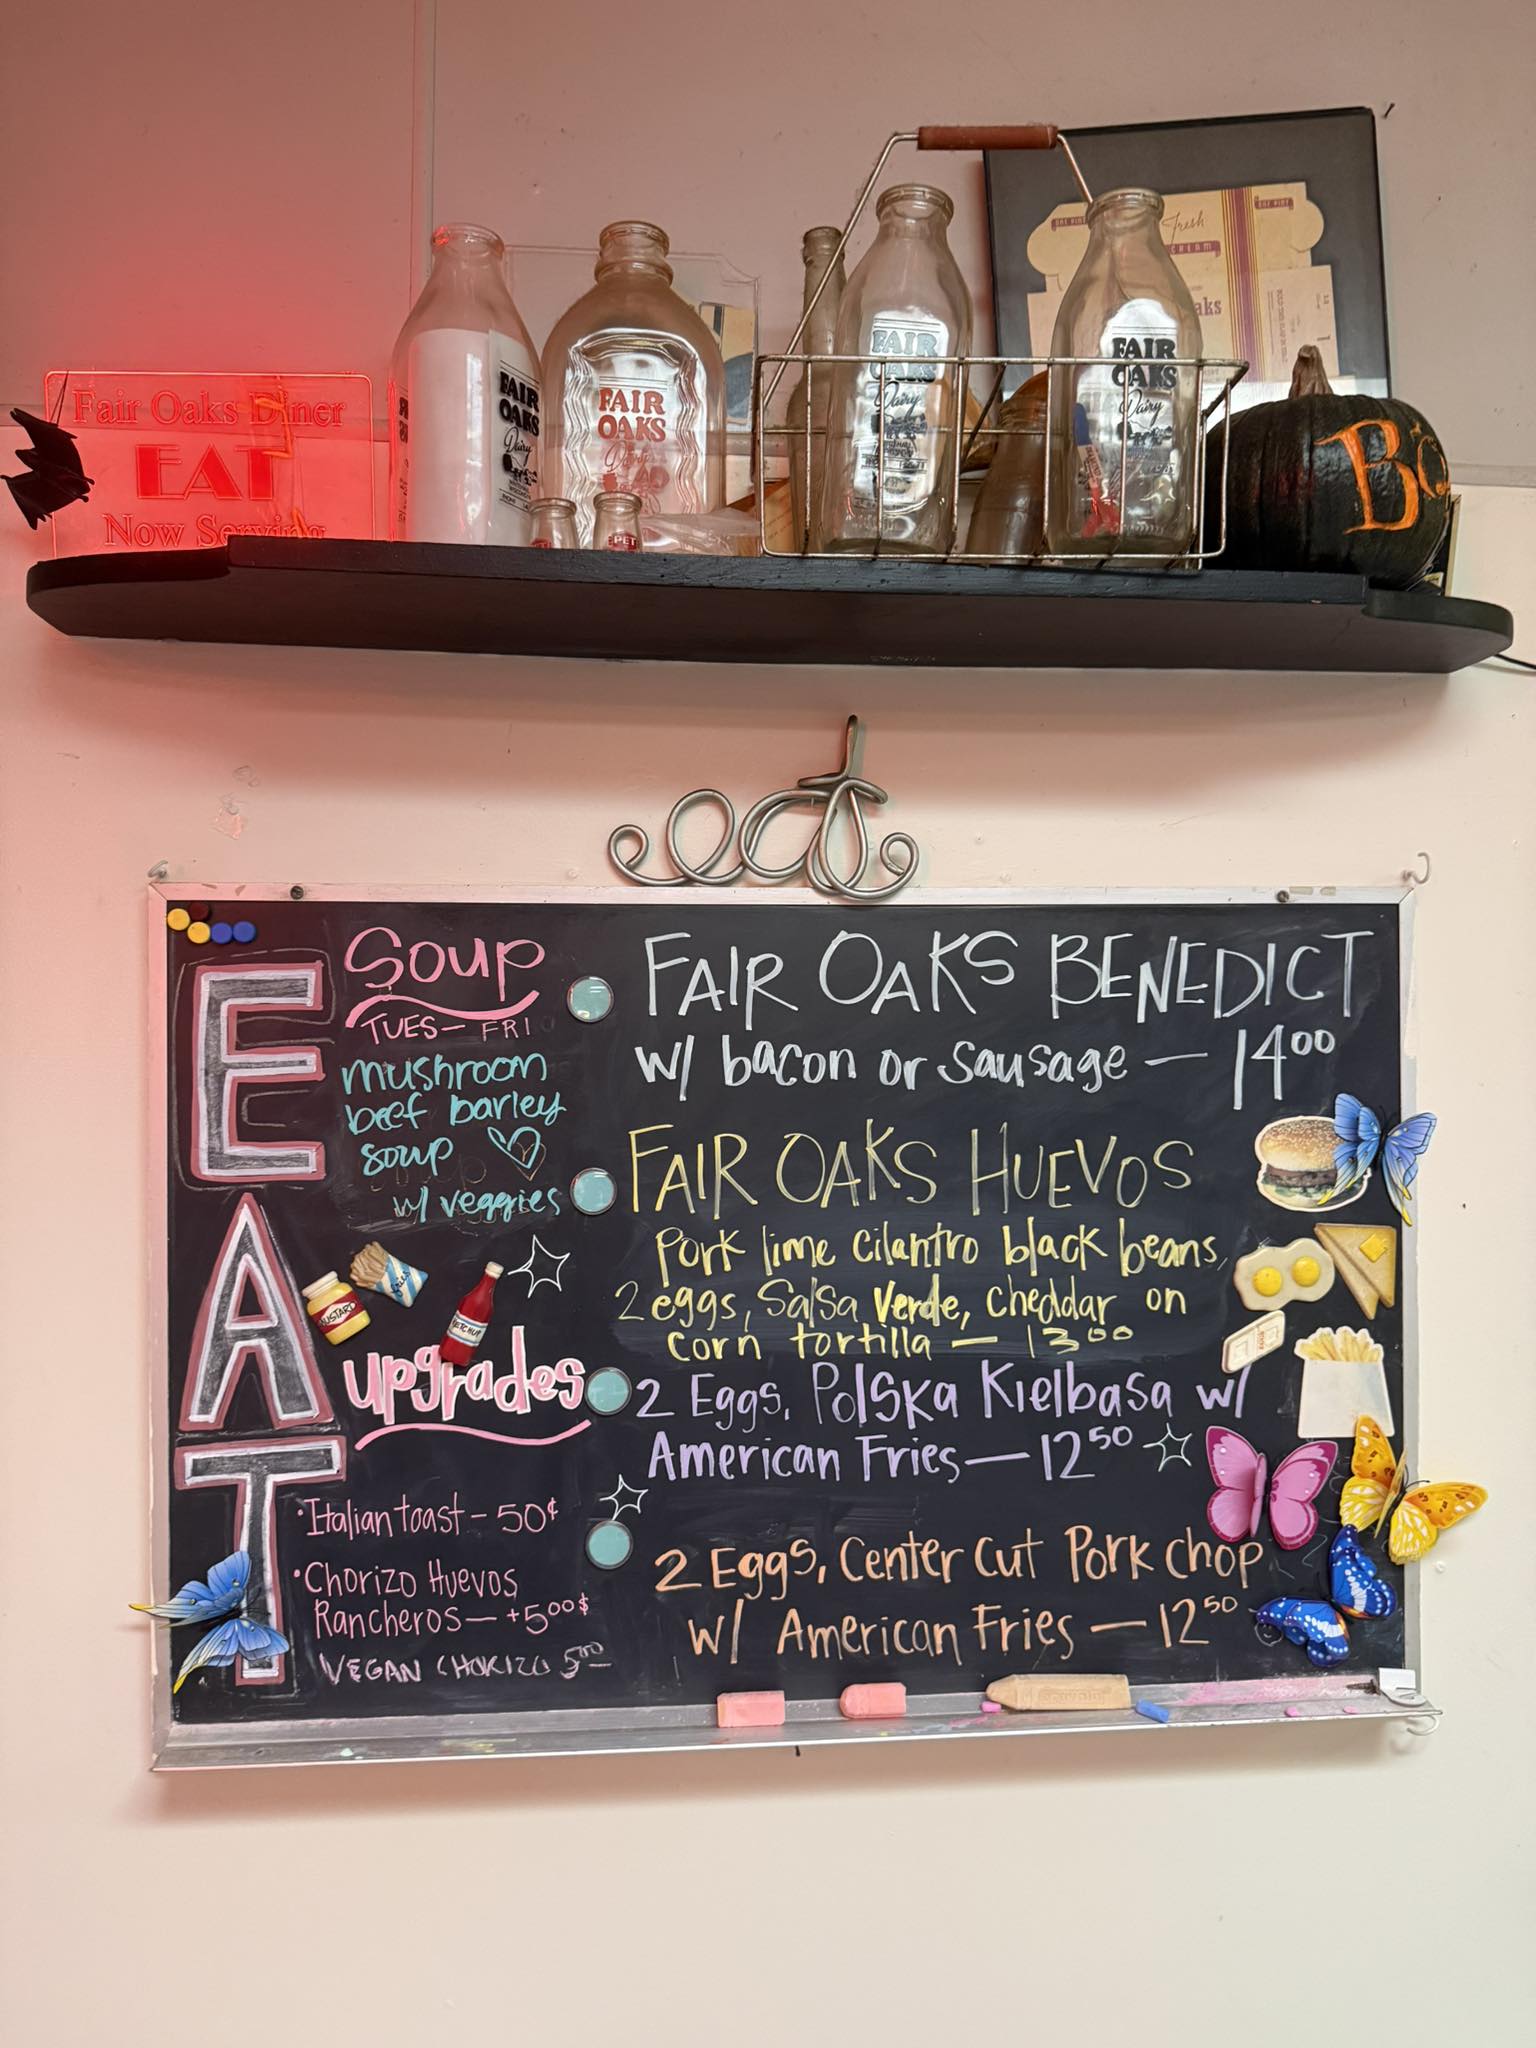 Fair Oaks Diner
EAT
Now Serving
FAIR
OAKS
Dairy
FAIR
OAKS
Dairy
FAIR
OAKS
Dairy
FAIR
OAKS
Dairy
Fresh
CREAM
aks
Bo
eat
EAT
Soup
TUES - FRI
mushroom
beef barley
soup
w/ veggies
MUSTARD
fries
KETCHUP
upgrades
• Italian toast - 50¢
• Chorizo Huevos
Rancheros — +5⁰⁰$
VEGAN CHORIZO 5⁰⁰
FAIR OAKS BENEDICT
w/ bacon or sausage — 14⁰⁰
FAIR OAKS HUEVOS
Pork lime cilantro black beans,
2 eggs, Salsa Verde, cheddar on
corn tortilla — 13⁰⁰
2 Eggs, Polska Kielbasa w/
American Fries — 12⁵⁰
2 Eggs, Center Cut Pork chop
w/ American Fries — 12⁵⁰